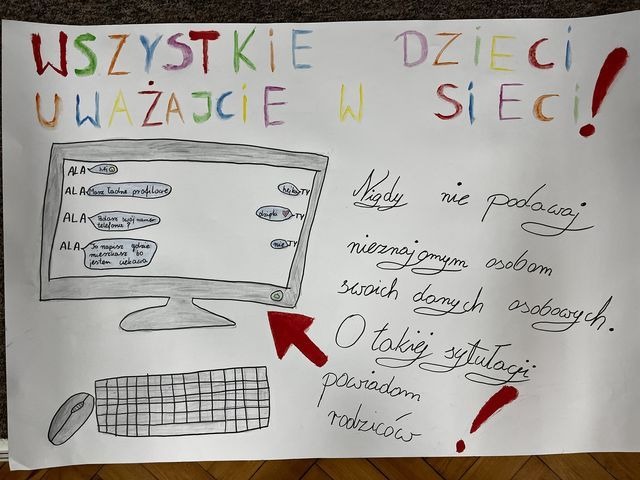 WSZYSTKIE DZIECI
UWAŻAJCIE W SIECI!
ALA hej
ALA Masz ładne profilowe
hejka TY
dzięki TY
ALA Podasz swój numer
telefonu?
nie TY
ALA To napisz gdzie
mieszkasz bo
jestem ciekawa
Nigdy nie podawaj
nieznajomym osobom
swoich danych osobowych.
O takiej sytułacji
powiadom
rodziców!